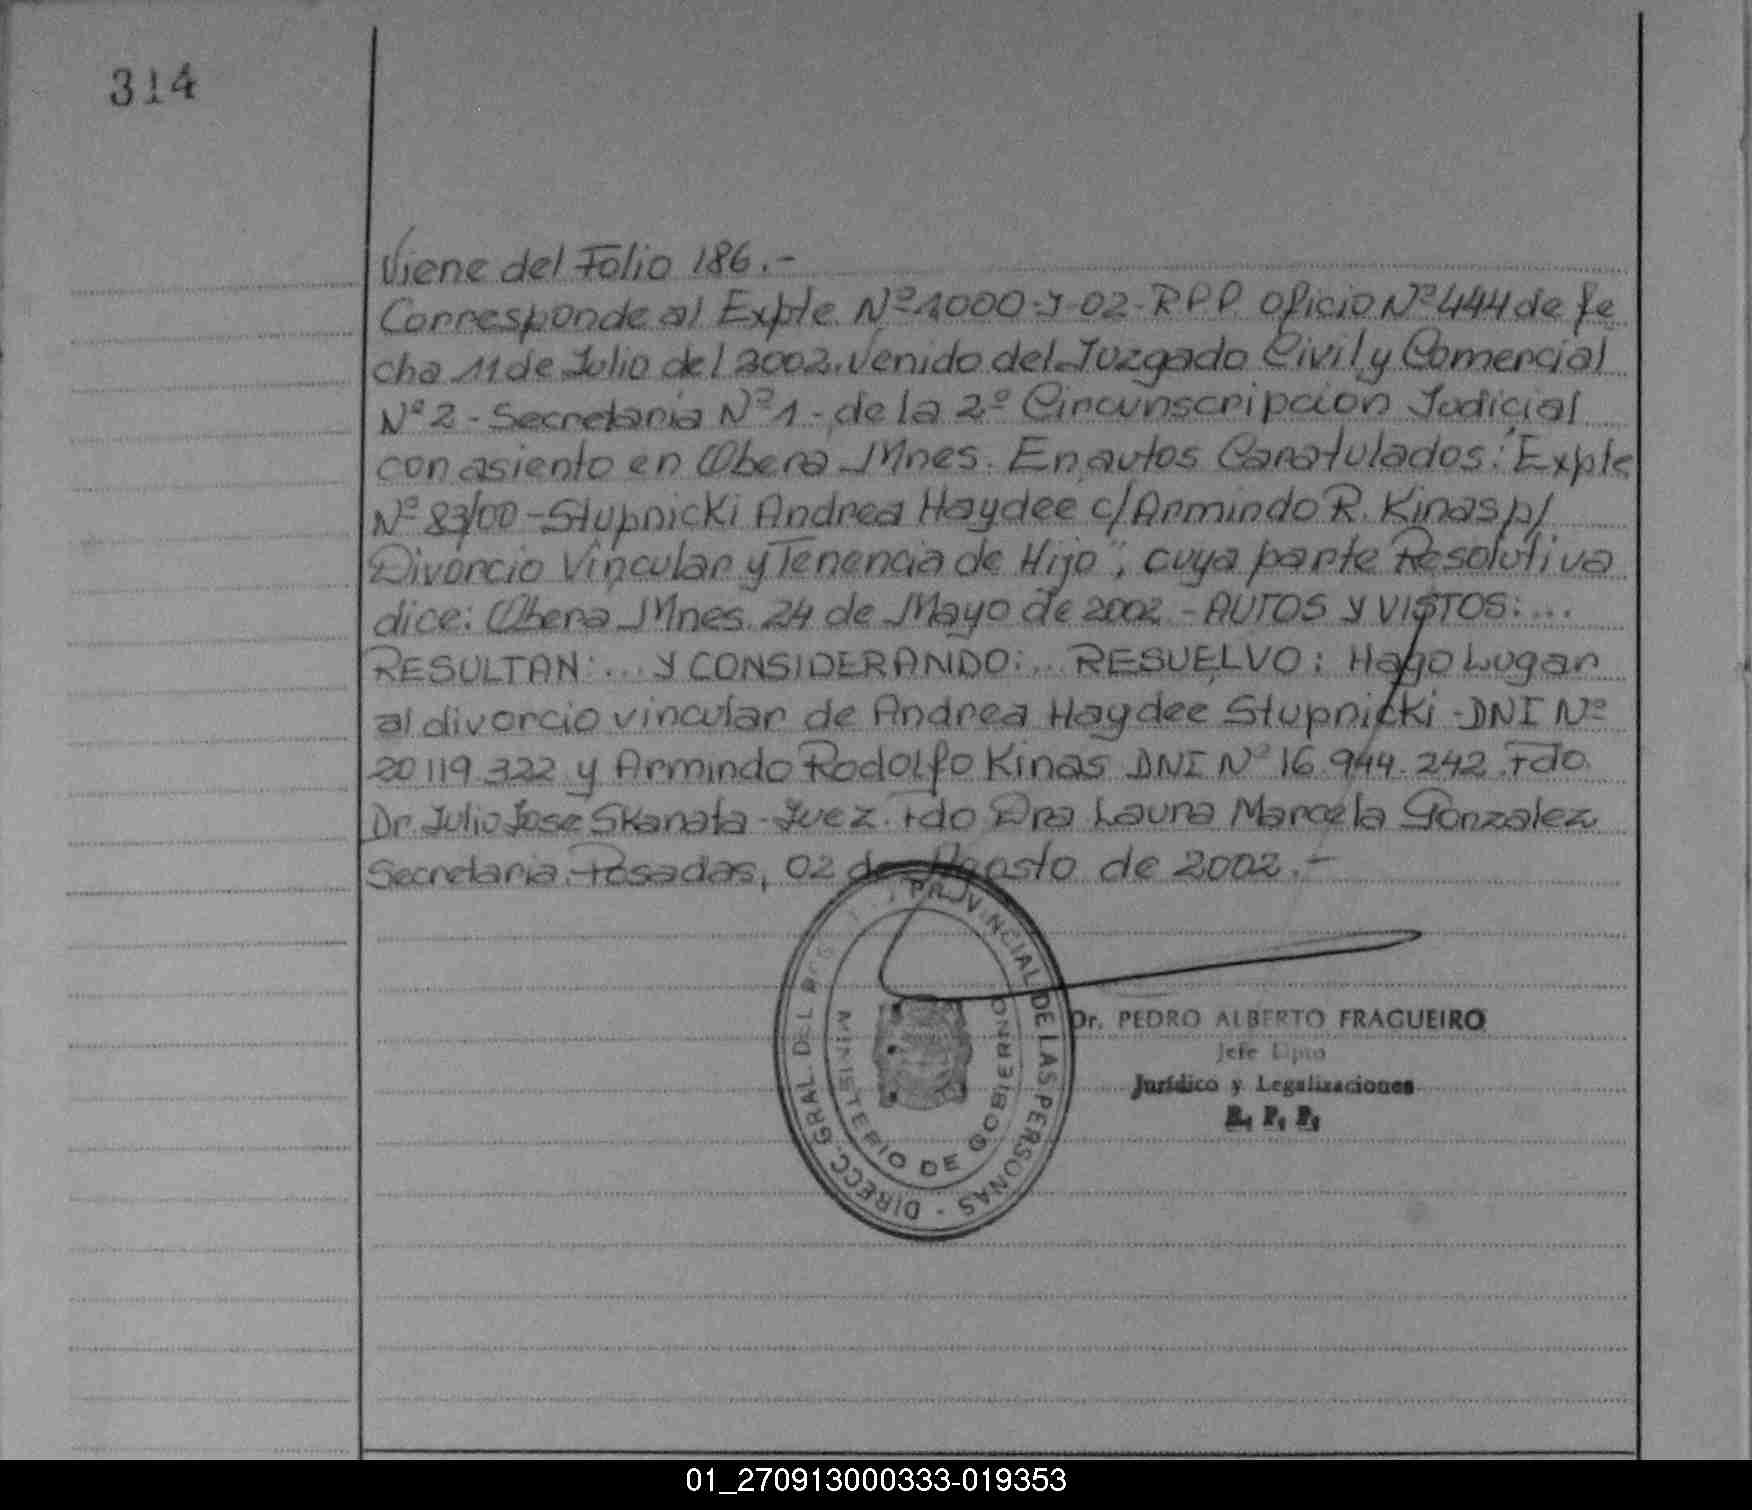 314
Viene del Folio 186.-
Corresponde al Expte. Nº 1000-J-02-RPP. Oficio Nº 444 de fe
cha 11 de Julio del 2002. Venido del Juzgado Civil y Comercial
Nº 2 - Secretaria Nº 1 - de la 2º Circunscripcion Judicial
con asiento en Obera Mnes. En autos Caratulados: "Expte
Nº 83/00 - Stupnicki Andrea Haydee c/ Armindo R. Kinas p/
Divorcio Vincular y Tenencia de Hijo", cuya parte Resolutiva
dice: Obera Mnes. 24 de Mayo de 2002. - AUTOS Y VISTOS:...
RESULTAN:... Y CONSIDERANDO:... RESUELVO: Hago Lugar
al divorcio vincular de Andrea Haydee Stupnicki - DNI Nº
20119.322 y Armindo Rodolfo Kinas DNI Nº 16.944.242. Fdo.
Dr. Julio Jose Skanata - Juez. Fdo Dra Laura Marcela Gonzalez
Secretaria. Posadas, 02 de Agosto de 2002.-
DIRECC. GRAL. DEL REG. PROVINCIAL DE LAS PERSONAS -
MINISTERIO DE GOBIERNO
Dr. PEDRO ALBERTO FRAGUEIRO
Jefe Dpto
Jurídico y Legalizaciones
R. P. P.
01_270913000333-019353